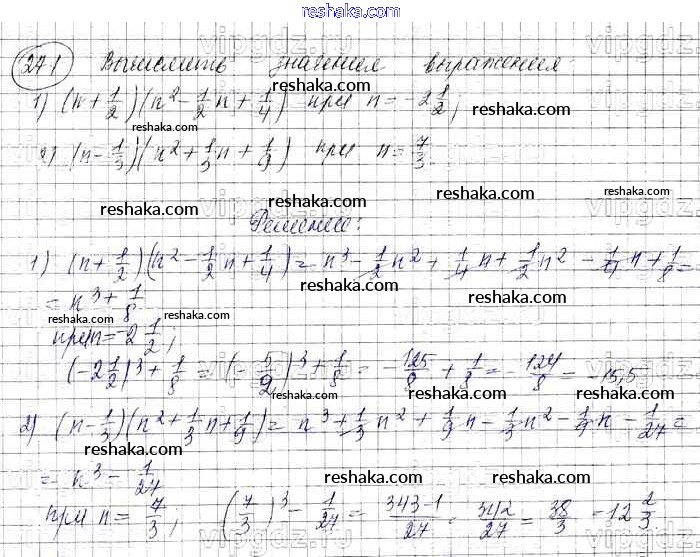 reshaka.com
271 Вычислить значения выражения:
1) (n + 1/2)(n² - 1/2 n + 1/4) при n = -2 1/2;
reshaka.com
reshaka.com
2) (n - 1/3)(n² + 1/3 n + 1/9) при n = 7/3.
reshaka.com
reshaka.com
reshaka.com
Решение:
1) (n + 1/2)(n² - 1/2 n + 1/4) = n³ - 1/2 n² + 1/4 n + 1/2 n² - 1/4 n + 1/8 =
reshaka.com
= n³ + 1/8
reshaka.com
при n = -2 1/2;
(-2 1/2)³ + 1/8 = (-5/2)³ + 1/8 = -125/8 + 1/8 = -124/8 = -15,5
reshaka.com
reshaka.com
2) (n - 1/3)(n² + 1/3 n + 1/9) = n³ + 1/3 n² + 1/9 n - 1/3 n² - 1/9 n - 1/27 =
reshaka.com
reshaka.com
= n³ - 1/27
reshaka.com
при n = 7/3; (7/3)³ - 1/27 = 343-1/27 = 342/27 = 38/3 = 12 2/3
reshaka.com
reshaka.com